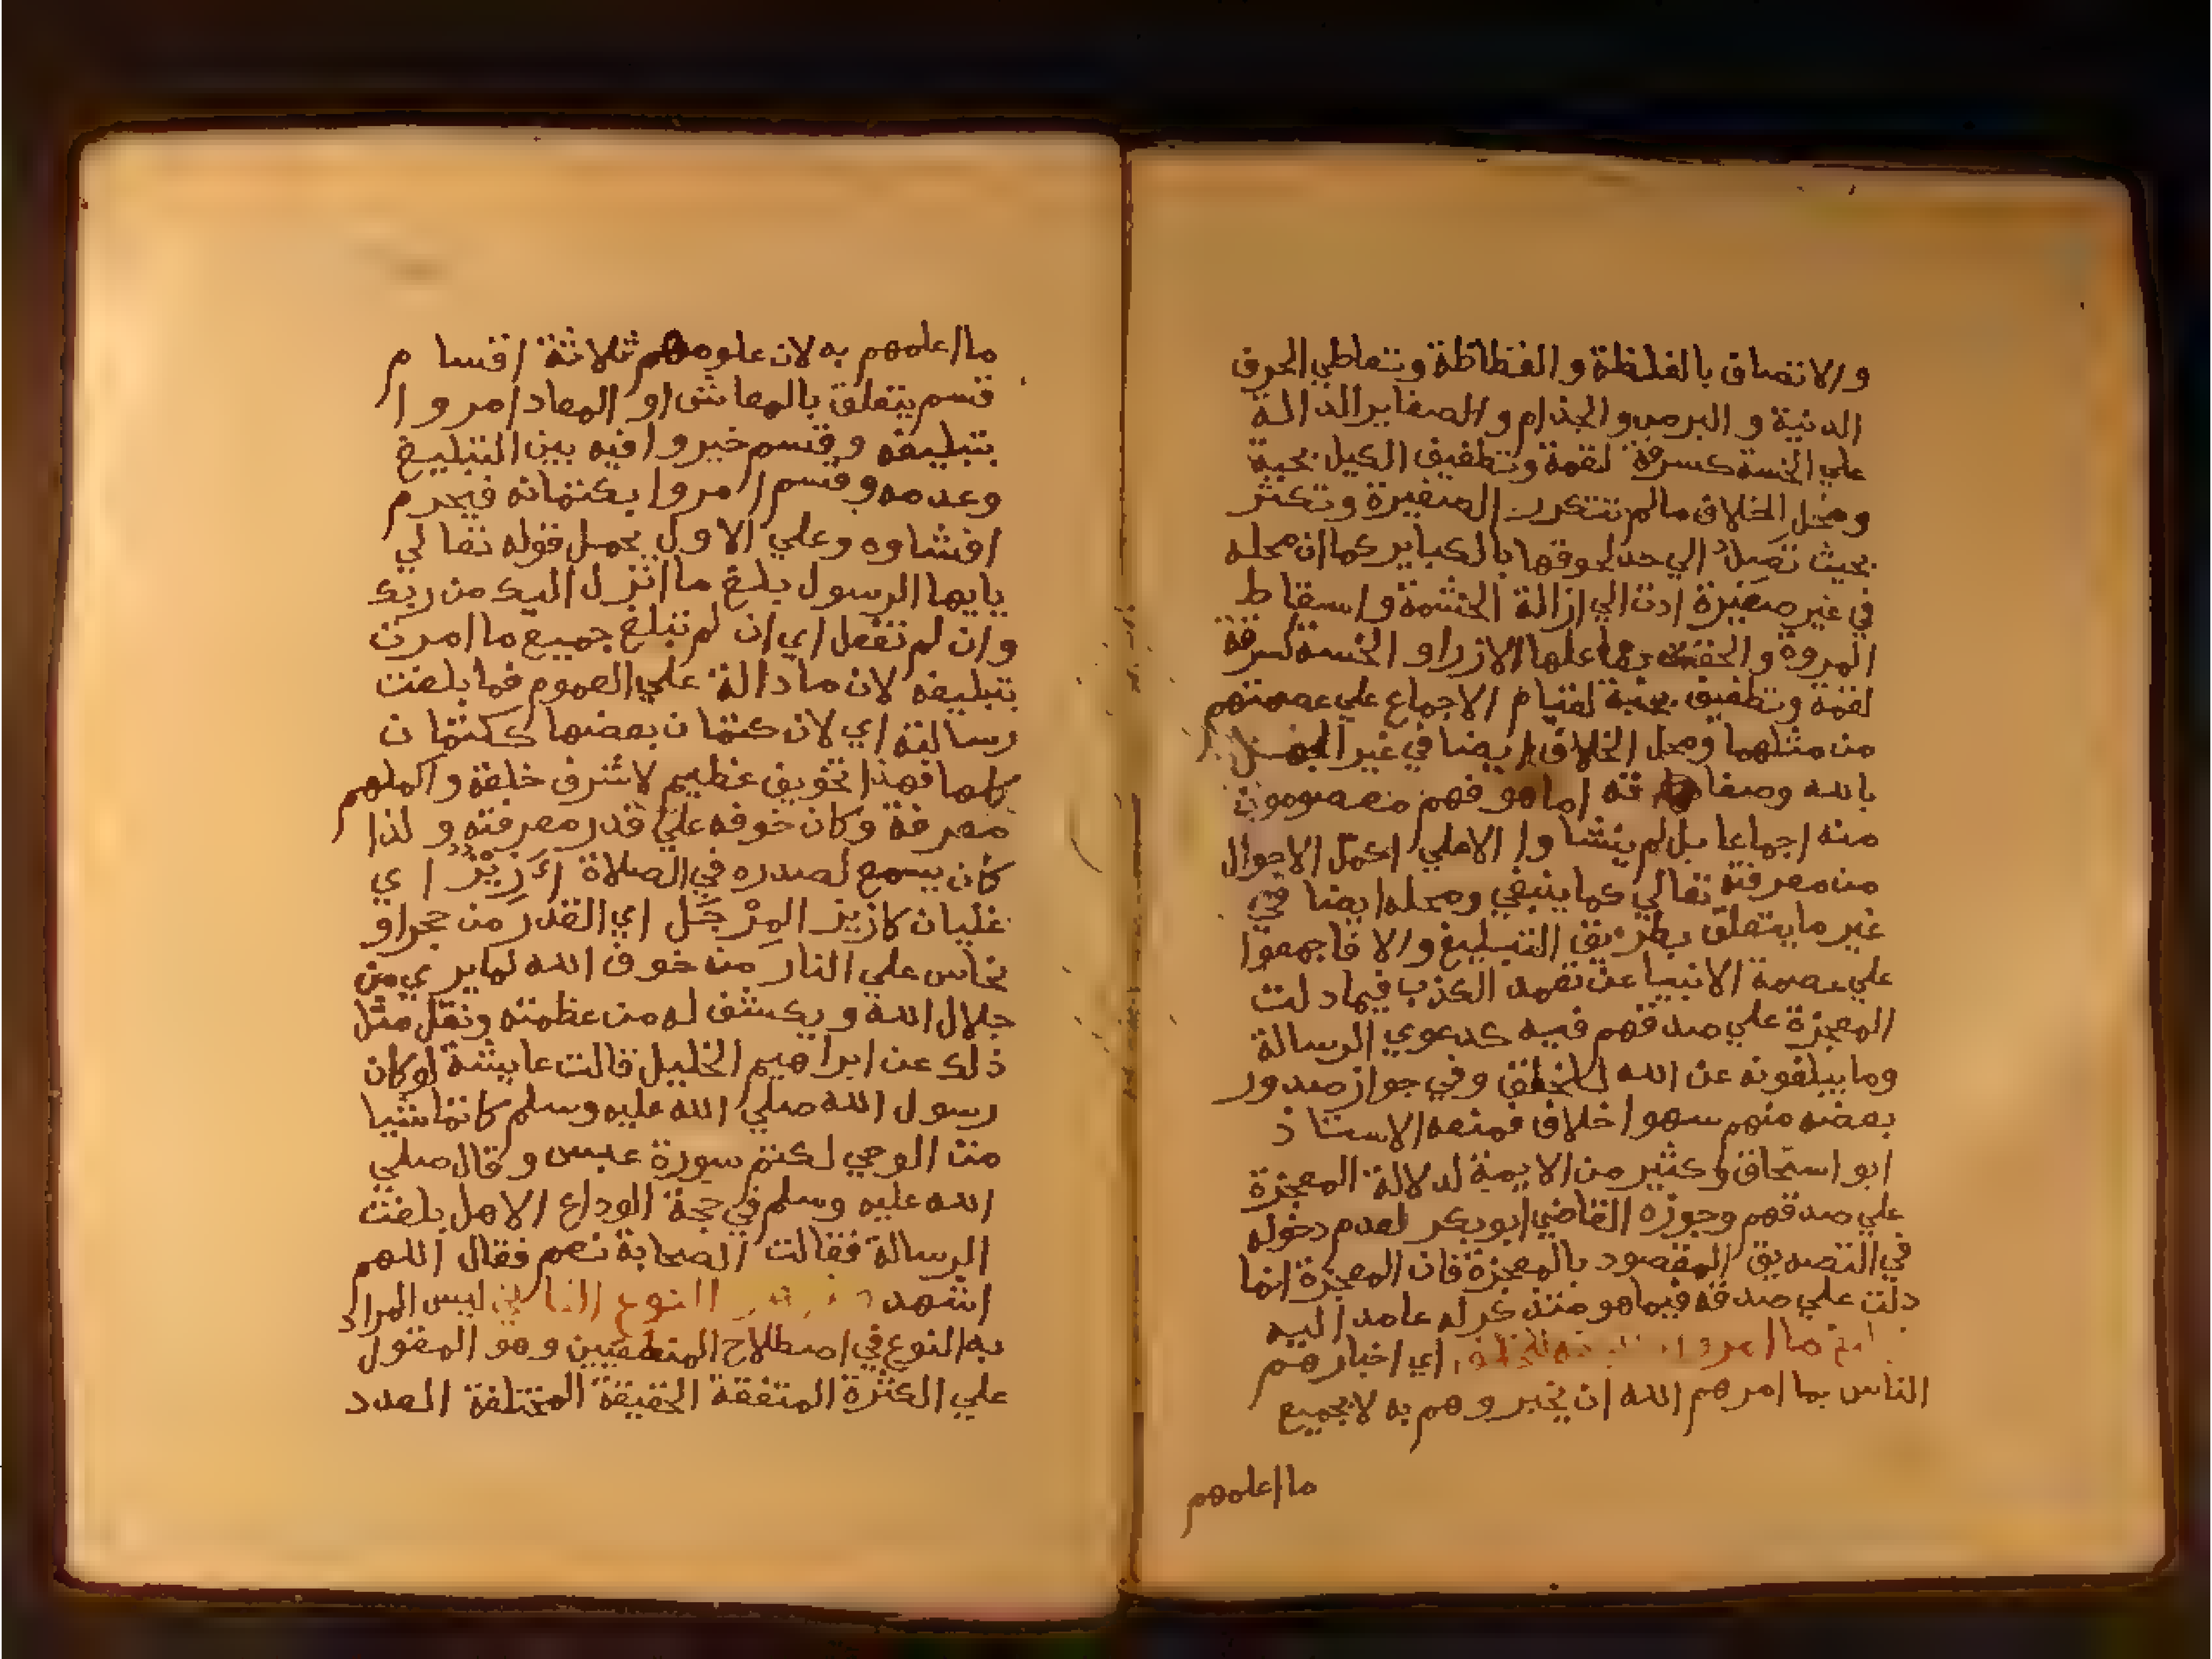 والاتصاف بالغلظة والفظاظة وتعاطي الحرف
الدنية والبرص والجذام والصغاير الدالة
علي الخسة كسرقة لقمة وتطفيف الكيل بحبة
ومحل الخلاف ما لم تتكرر الصغيرة وتكثر
بحيث تصل الي حد لحوقها بالكباير كما ان محله
في غير صغيرة ادت الي ازالة الحشمة واسقاط
المروة و الازرا و الخسة كسرقة
لقمة وتطفيف بحبة لقيام الاجماع علي عصمتهم
من مثلهما ومحل الخلاف ايضا في غير الجهل
بالله وصفاته اما هو فهم معصومون
منه اجماعا بل لم ينشاوا الا علي اكمل الاحوال
من معرفته تعالي كما ينبغي ومحله ايضا في
غير ما يتعلق بطريق التبليغ والا فاجمعوا
علي عصمة الانبيا عن تعمد الكذب فيما دلت
المعجزة علي صدقهم فيه كدعوي الرسالة
وما يبلغونه عن الله للخلق وفي جواز صدور
بعضه منهم سهوا خلاف فمنعه الاستاذ
ابو اسحاق وكثير من الايمة لدلالة المعجزة
علي صدقهم وجوزه القاضي ابو بكر لعدم دخوله
في التصديق المقصود بالمعجزة فان المعجزة انما
دلت علي صدقه فيما هو متذكر له عامد اليه
ما امروا للخلق اي اخبارهم
الناس بما امرهم الله ان يخبروهم به لا بجميع
ما اعلمهم
ما اعلمهم به لان علومهم ثلاثة اقسام
قسم يتعلق بالمعاش او المعاد امروا
بتبليغه وقسم خيروا فيه بين التبليغ
وعدمه وقسم امروا بكتمانه فيحرم
افشاوه وعلي الاول يحمل قوله تعالي
يايها الرسول بلغ ما انزل اليك من ربك
وان لم تفعل اي ان لم تبلغ جميع ما امرت
بتبليغه لان ما دالة علي العموم فما بلغت
رسالته اي لان كتمان بعضها ككتمان
كلها فهذا تخويف عظيم لاشرف خلقه واكملهم
معرفة وكان خوفه علي قدر معرفته ولذا
كان يسمع لصدره في الصلاة أَزِيْزٌ اي
غليان كازيز المِرْجَل اي القدر من حجر او
نحاس علي النار من خوف الله لما يري من
جلال الله ويكشف له من عظمته ونقل مثل
ذلك عن ابراهيم الخليل قالت عايشة لو كان
رسول الله صلي الله عليه وسلم كاتما شيا
من الوحي لكتم سورة عبس وقال صلي
الله عليه وسلم في حجة الوداع الا هل بلغت
الرسالة فقالت الصحابة نعم فقال اللهم
اشهد النوع الثاني ليس المراد
به النوع في اصطلاح المنطقيين وهو المقول
علي الكثرة المتفقة الحقيقة المختلفة العدد